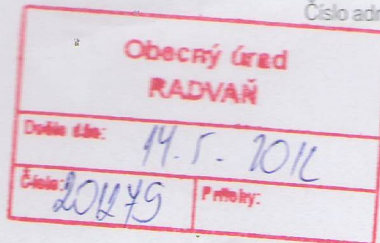 Číslo
Obecný úrad
RADVAŇ
Došlo dňa: 14. 5. 2012
Číslo:
Prílohy: